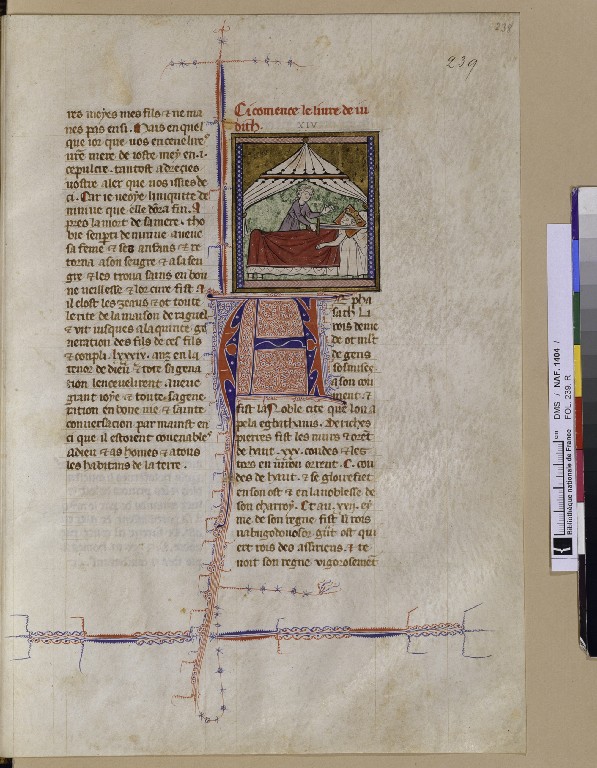 239
239
res moyses mes fils ⁊ ne ma
nes pas ensi. Mais en quel
que ior que vos encevelires
vre mere de ioste mey en .i.
sepulcre. tantost adrecies
vostre aler que vos issies de
ci. Car ie veoye liniquite de
ninive que elle dōra fin. A
pres la mort de sa mere. tho
bie se parti de ninive aveuc
sa feme ⁊ ses anfans ⁊ re
torna a son seugre ⁊ a sa seu
gre ⁊ les trova sains en bon
ne vieillesse ⁊ lor cure fist ⁊
il clost les zeaus ⁊ ot toute
lerite de la maison de raguel
⁊ vit iusques a la quinte ge
neration des fils de ces fils
⁊ compli .lxxxix. ans en la
temor de dieu ⁊ tote sa gena
sion lencevelirent aveuc
grant ioye ⁊ toute sa gene
ration en bone vie ⁊ sainte
conversation par maint en
ci que il estoient covenable
a dieu ⁊ as homes ⁊ a tous
les habitans de la terre.
Ci comence le livre de iu
dith.
XIV
A
pha
sath li
rois de me
de ot mlt
de gens
sosmises
a son com
ment ⁊
fist la noble cite que lon a
pela egbathanis. De riches
pierres fist les murs ⁊ ot
de haut .xxx. coudes ⁊ les
tors en orrent .C. cou
des de haut. ⁊ se glorefiet
en son ost ⁊ en la noblesse de
son charroy. Et au .xvii. en
me de son regne fist li rois
nabugodonosor grāt ost qui
ert rois des assiriens. ⁊ te
noit son regne vigorosemēt
Bibliothèque nationale de France
DMS / NAF. 1404 /
FOL. 239. R